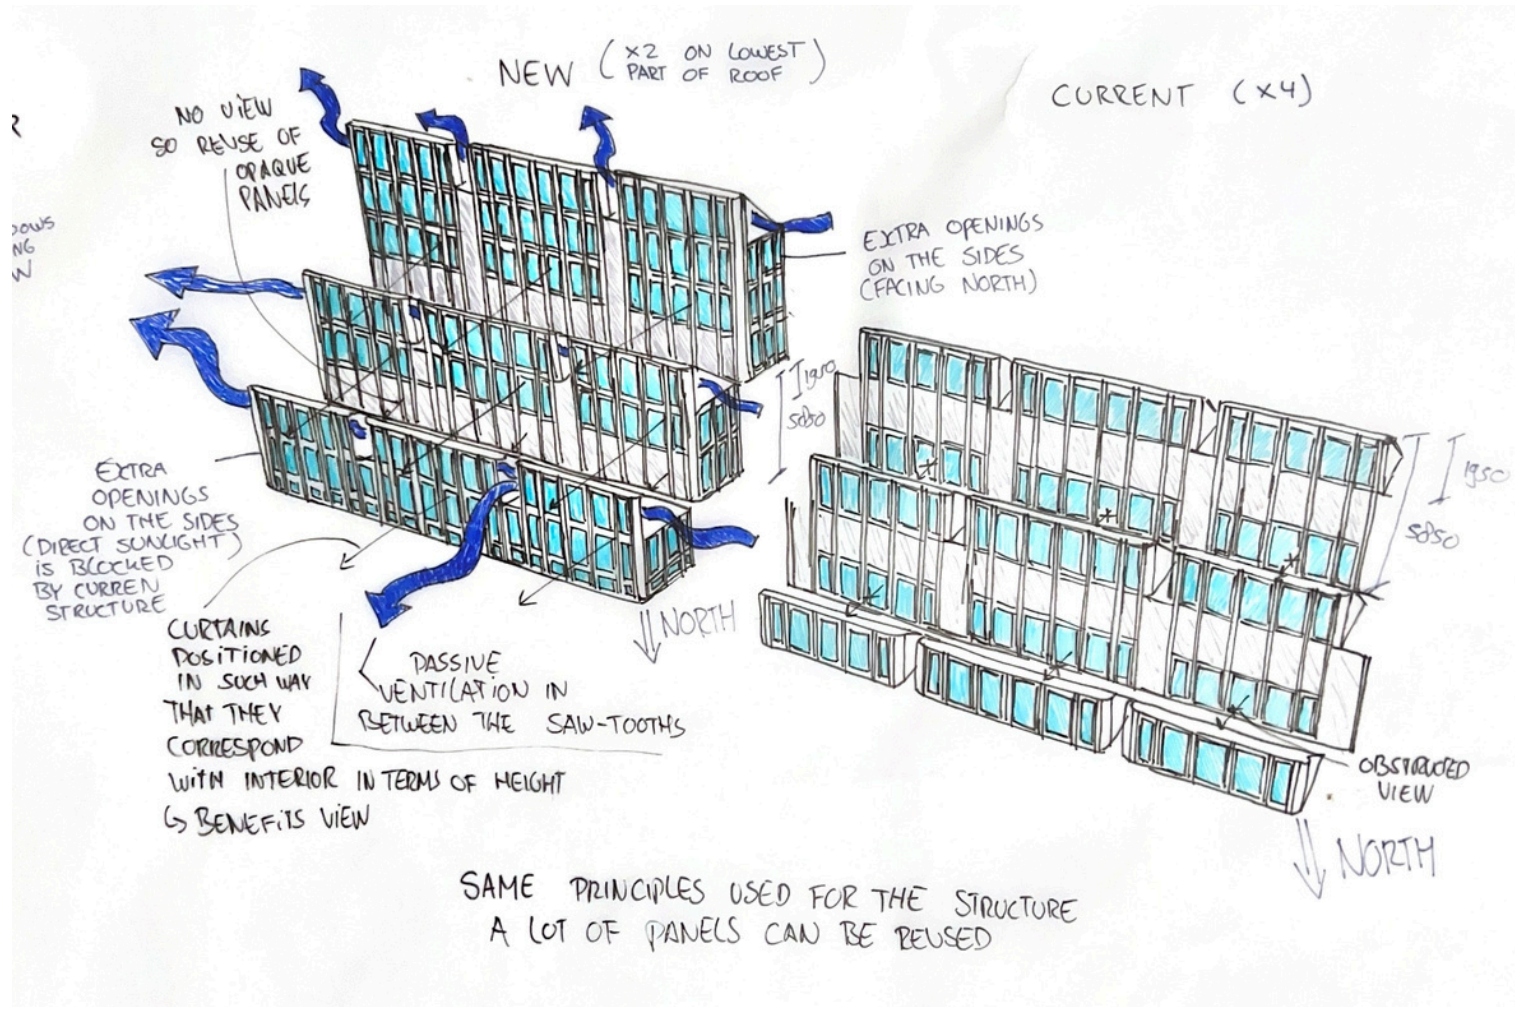 R
NEW (X2 ON LOWEST
PART OF ROOF)
CURRENT (X4)
NO VIEW
SO REUSE OF
OPAQUE
PANELS
DOWS
NG
W
EXTRA OPENINGS
ON THE SIDES
(FACING NORTH)
1950
5050
1950
5050
EXTRA
OPENINGS
ON THE SIDES
(DIRECT SUNLIGHT)
IS BLOCKED
BY CURREN
STRUCTURE
NORTH
CURTAINS
POSITIONED
IN SUCH WAY
THAT THEY
CORRESPOND
WITH INTERIOR IN TERMS OF HEIGHT
↳ BENEFITS VIEW
PASSIVE
VENTILATION IN
BETWEEN THE SAW-TOOTHS
OBSTRUCTED
VIEW
NORTH
SAME PRINCIPLES USED FOR THE STRUCTURE
A LOT OF PANELS CAN BE REUSED